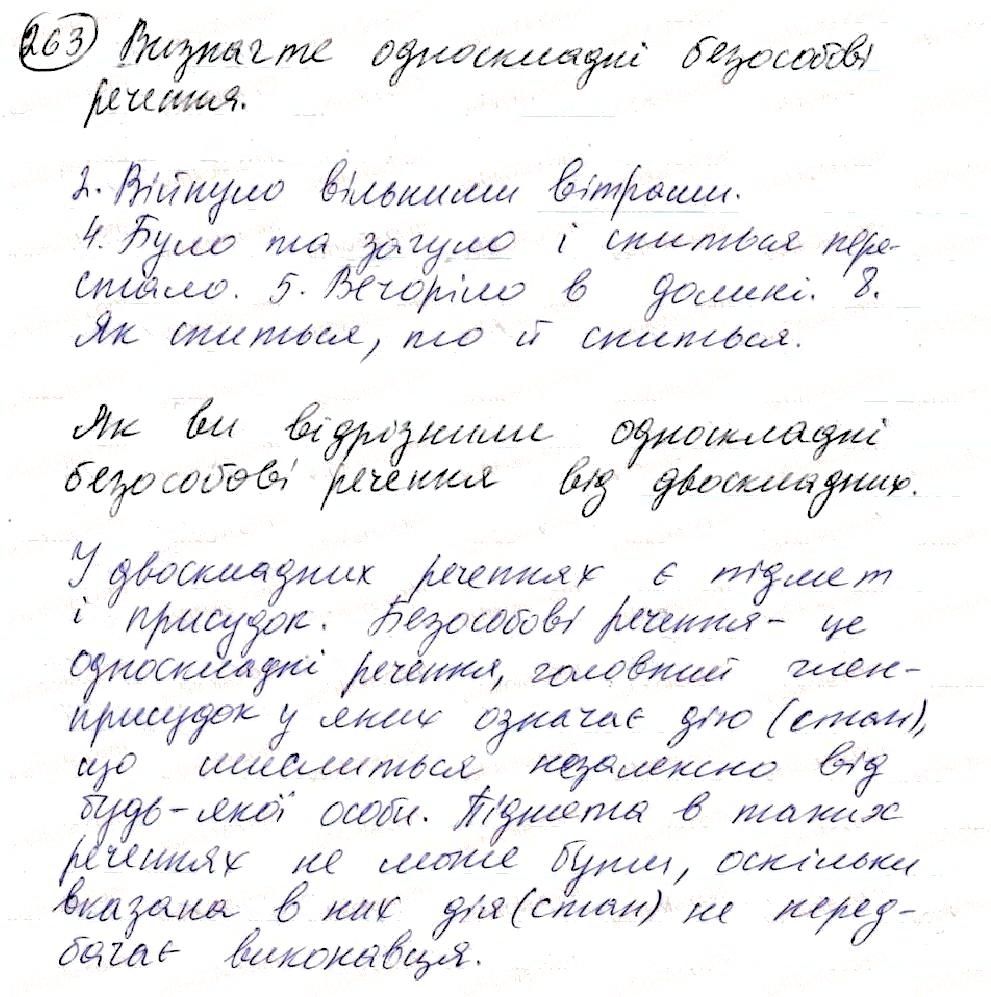 263 Визначте односкладні безособові
речення.
2. Війнуло вільними вітрами.
4. Було та загуло і снитися пере-
стало. 5. Вечоріло в долині. 8.
Як спиться, то й сниться.
Як ви відрізнили односкладні
безособові речення від двоскладних.
У двоскладних реченнях є підмет
і присудок. Безособові речення - це
односкладні речення, головний член-
присудок у яких означає дію (стан),
що мислиться незалежно від
будь-якої особи. Підмета в таких
реченнях не може бути, оскільки
вказана в них дія (стан) не перед-
бачає виконавця.